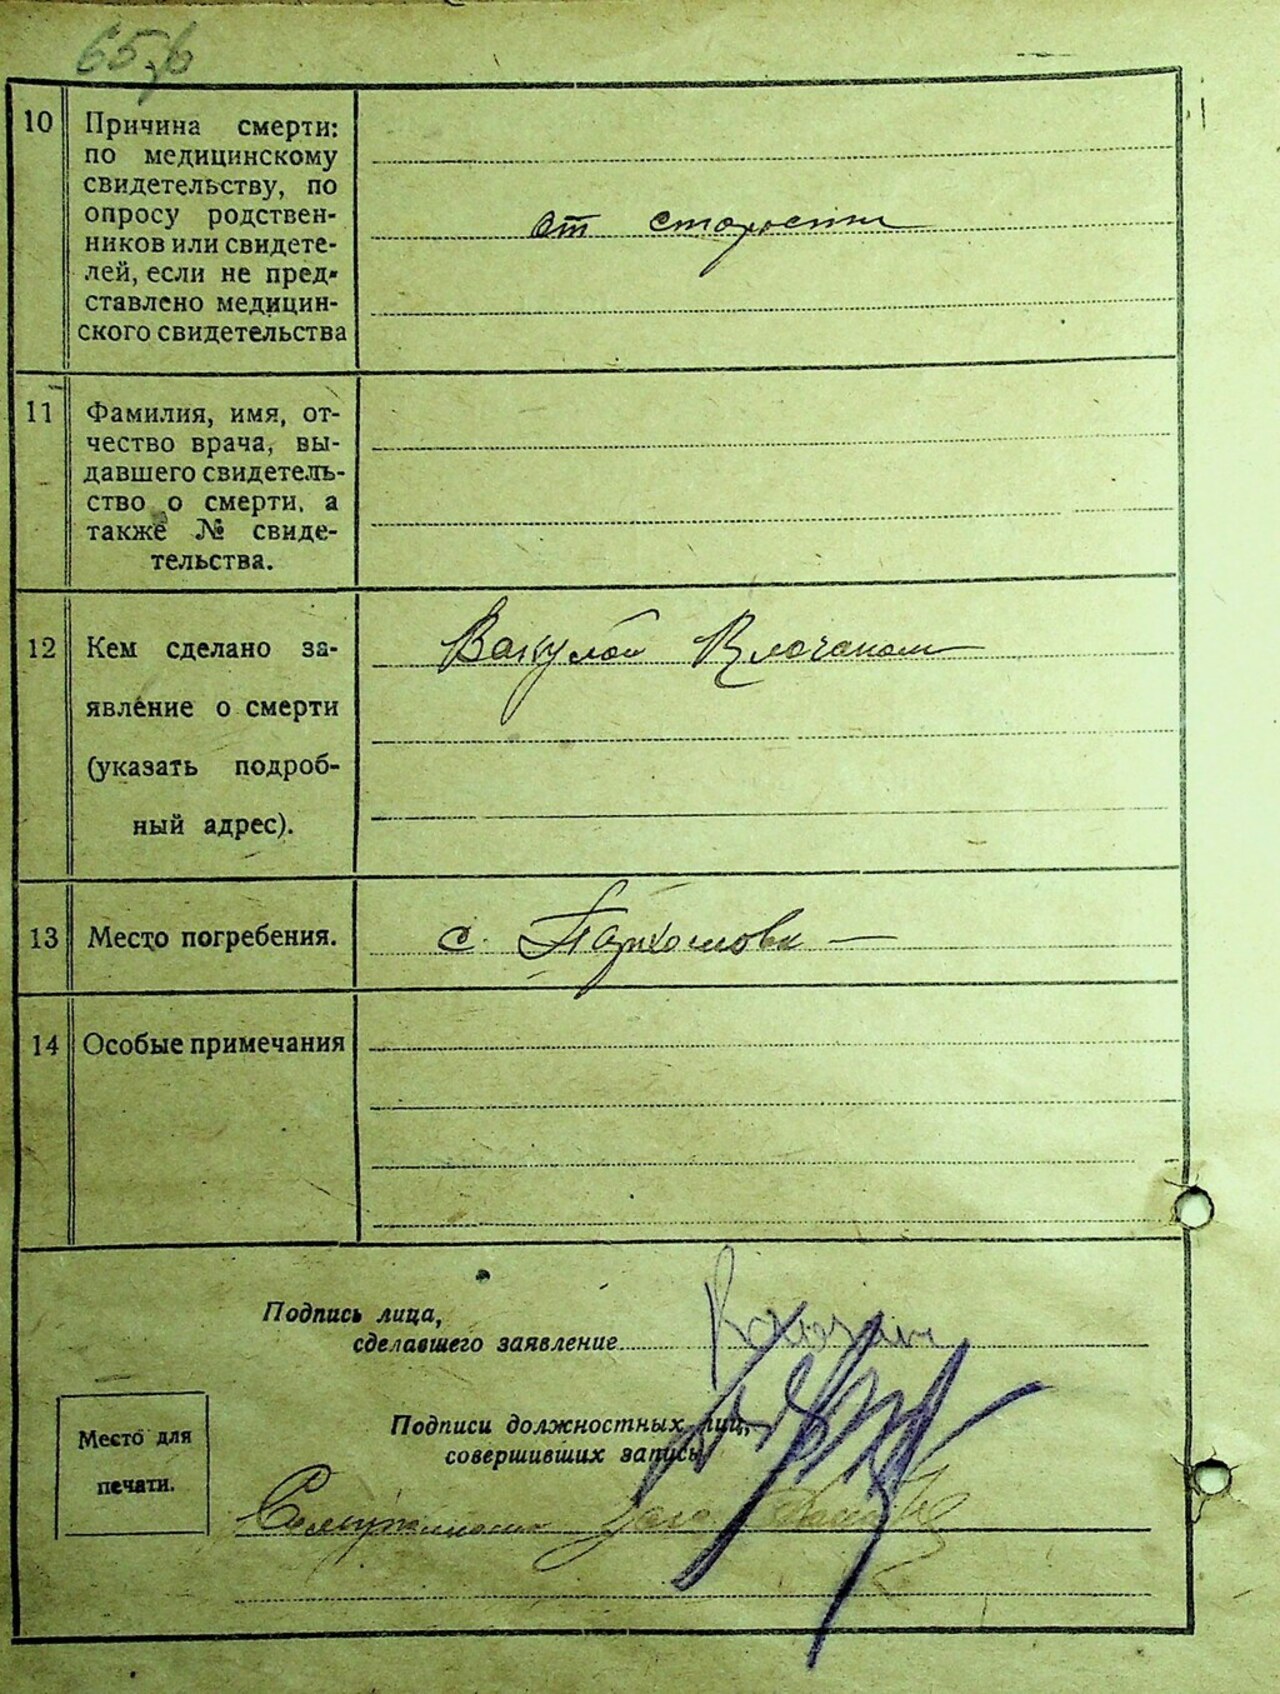 10 Причина смерти:
по медицинскому
свидетельству, по
опросу родствен-
ников или свидете-
лей, если не пред-
ставлено медицин-
ского свидетельства
от старости
11 Фамилия, имя, от-
чество врача, вы-
давшего свидетель-
ство о смерти, а
также № свиде-
тельства.
12 Кем сделано за-
явление о смерти
(указать подроб-
ный адрес).
Вакулой
13 Место погребения.
с. Пархомовка
14 Особые примечания
Подпись лица,
сделавшего заявление
Подписи должностных лиц,
совершивших запись
Место для
печати.